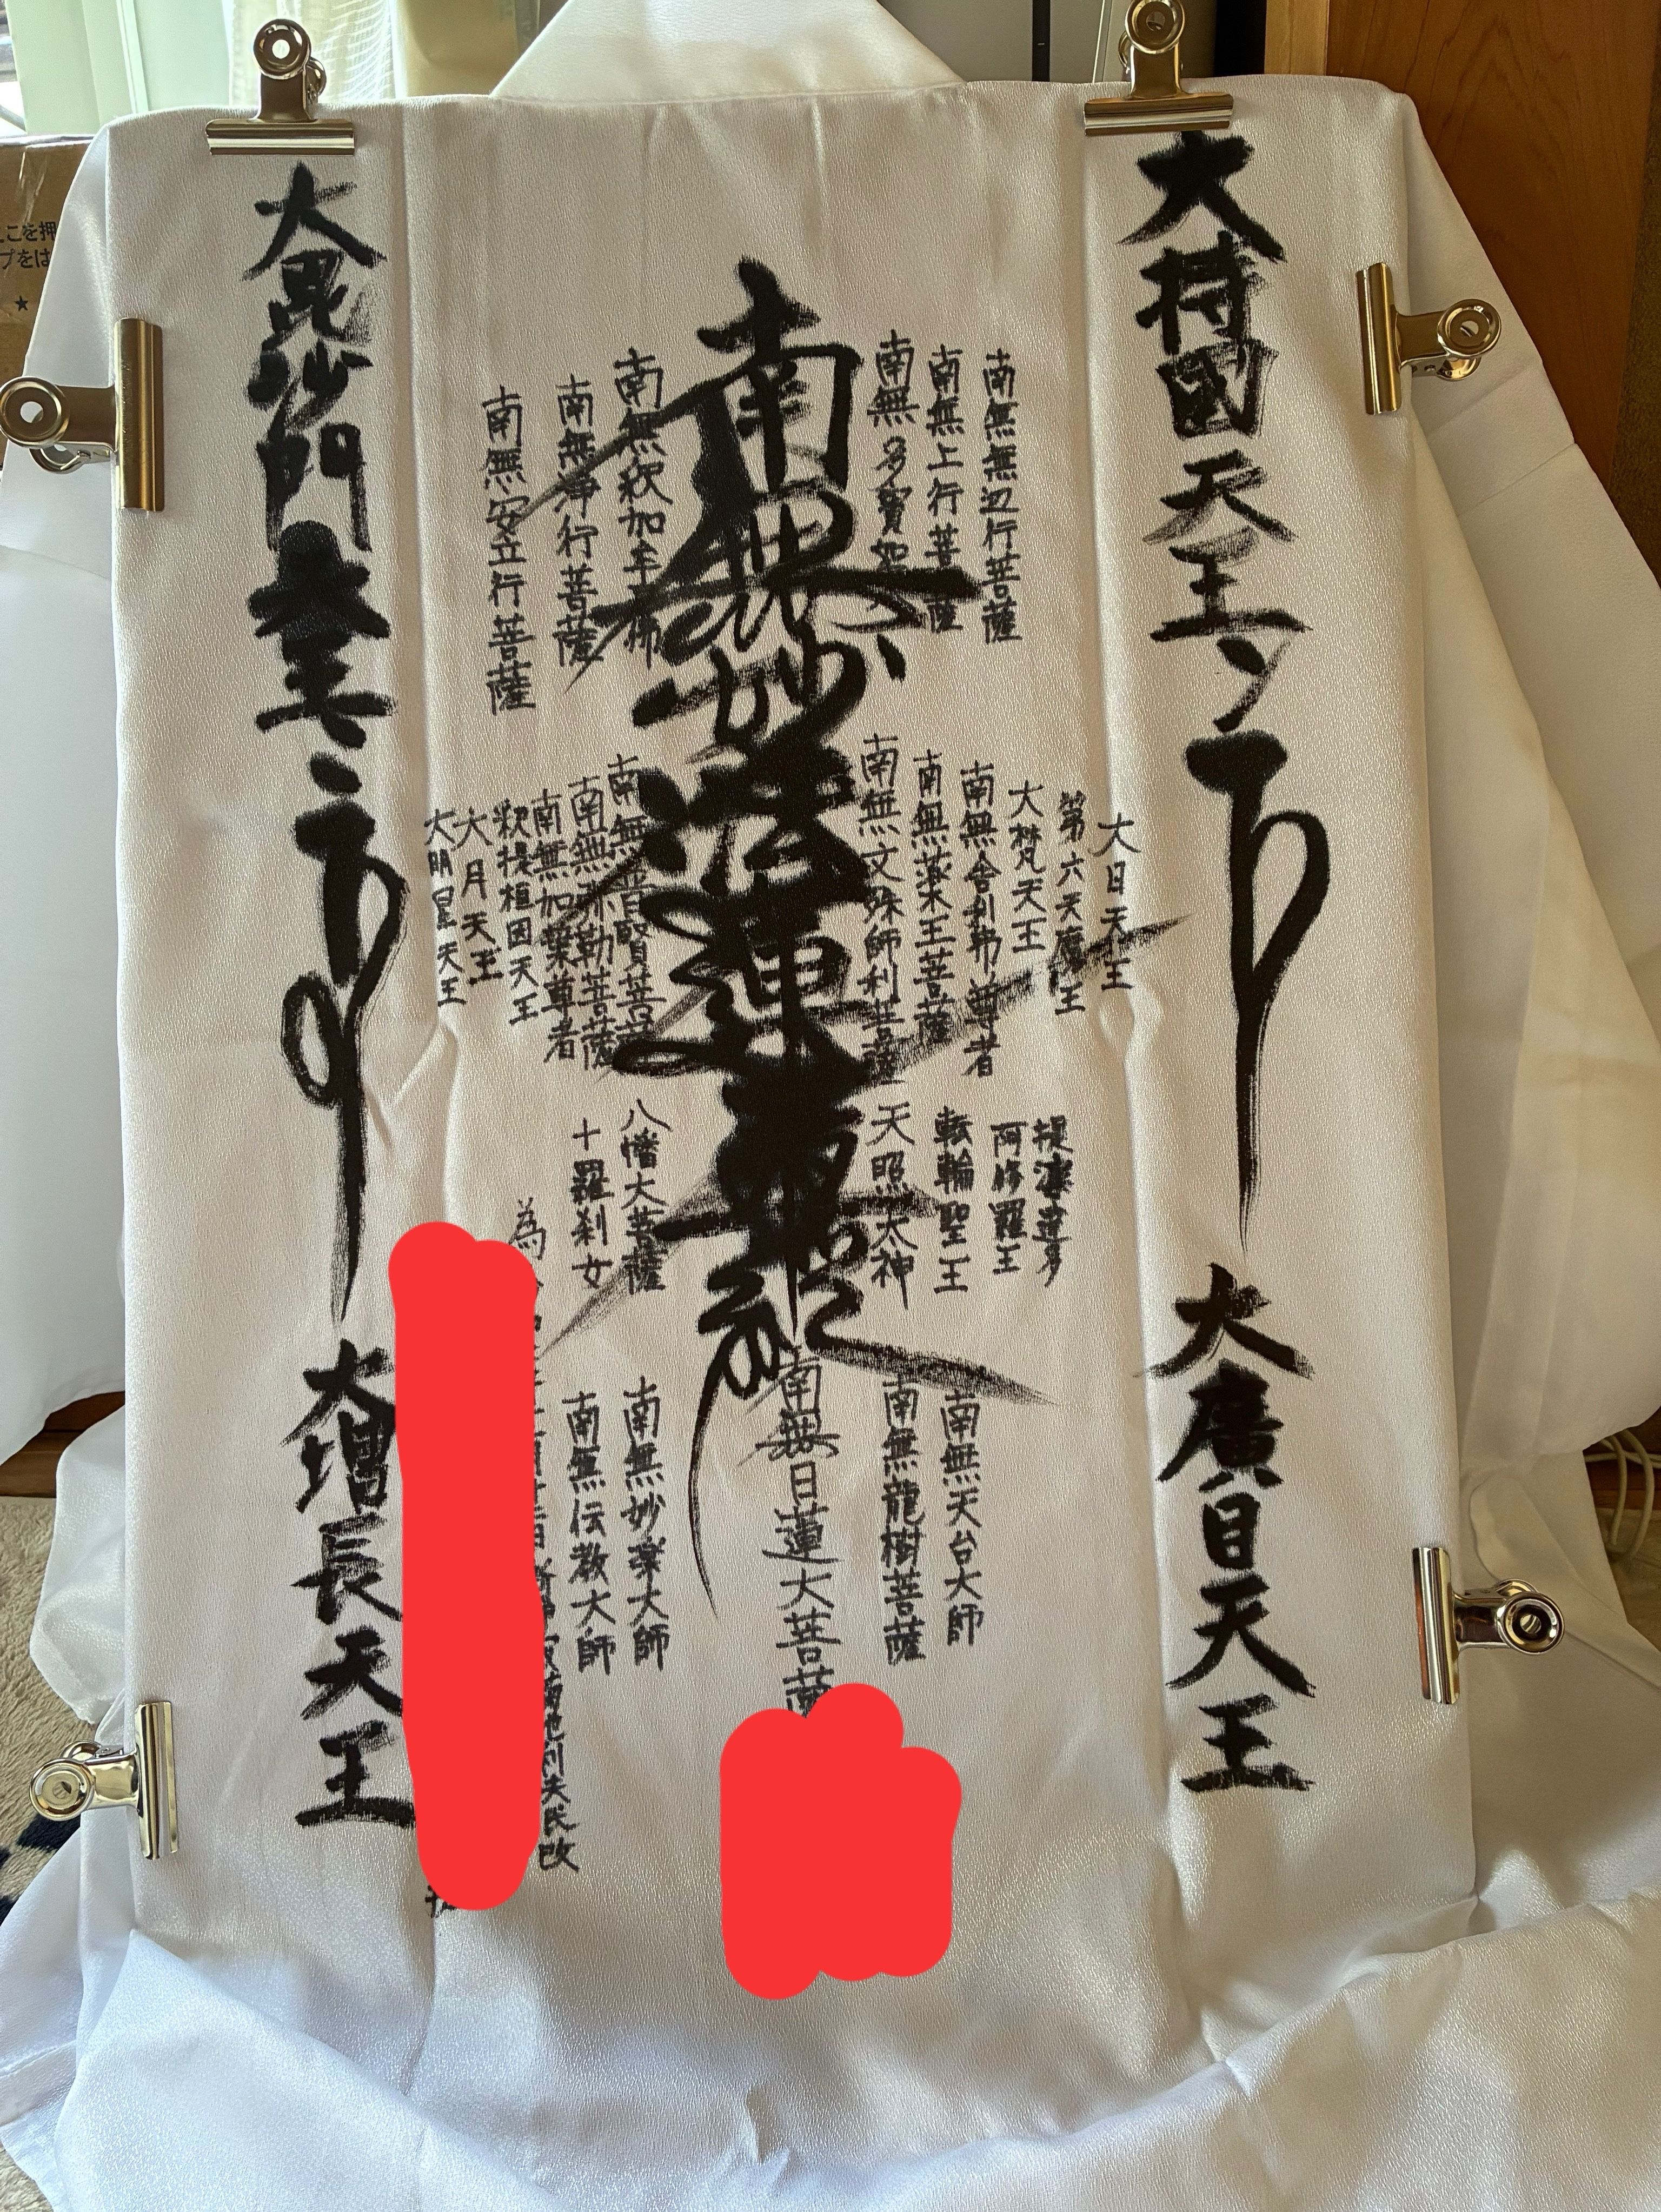 大持國天王
大廣目天王
大日天王
第六天魔王
大梵天王
南無無辺行菩薩
南無上行菩薩
南無多寳如
南無舎利弗尊者
南無薬王菩薩
南無文殊師利菩薩
提婆達多
阿修羅王
転輪聖王
天照太神
南無天台大師
南無龍樹菩薩
南無妙法蓮華經
南無日蓮大菩薩
南無釈加牟尼佛
南無浄行菩薩
南無安立行菩薩
南無普賢菩薩
南無弥勒菩薩
南無加葉尊者
釈提桓因天王
大月天王
大明星天王
八幡大菩薩
十羅刹女
南無妙楽大師
南無伝教大師
為
大毘沙門天王
大増長天王
ここを押
プをは